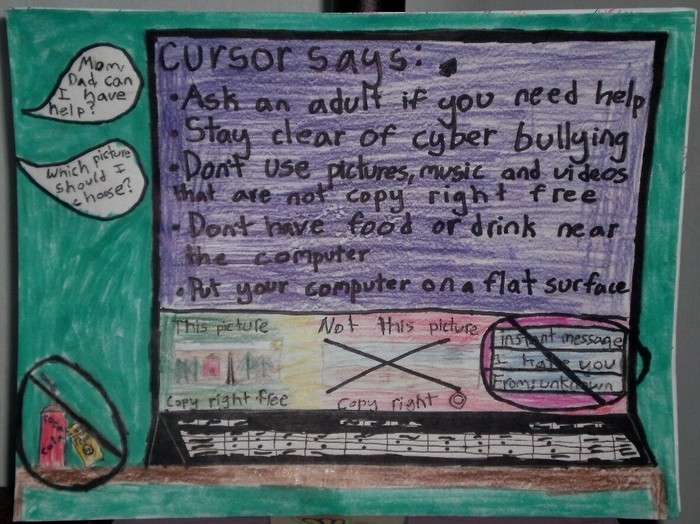 Mom,
Dad can
I have
help?
Which picture
should I
choose?
Cursor says:
• Ask an adult if you need help
• Stay clear of cyber bullying
• Don't use pictures, music and videos
that are not copy right free
• Don't have food or drink near
the computer
• Put your computer on a flat surface
This picture
Copy right free
Not this picture
Copy right ©
Instant message
I hate you
From: unknown